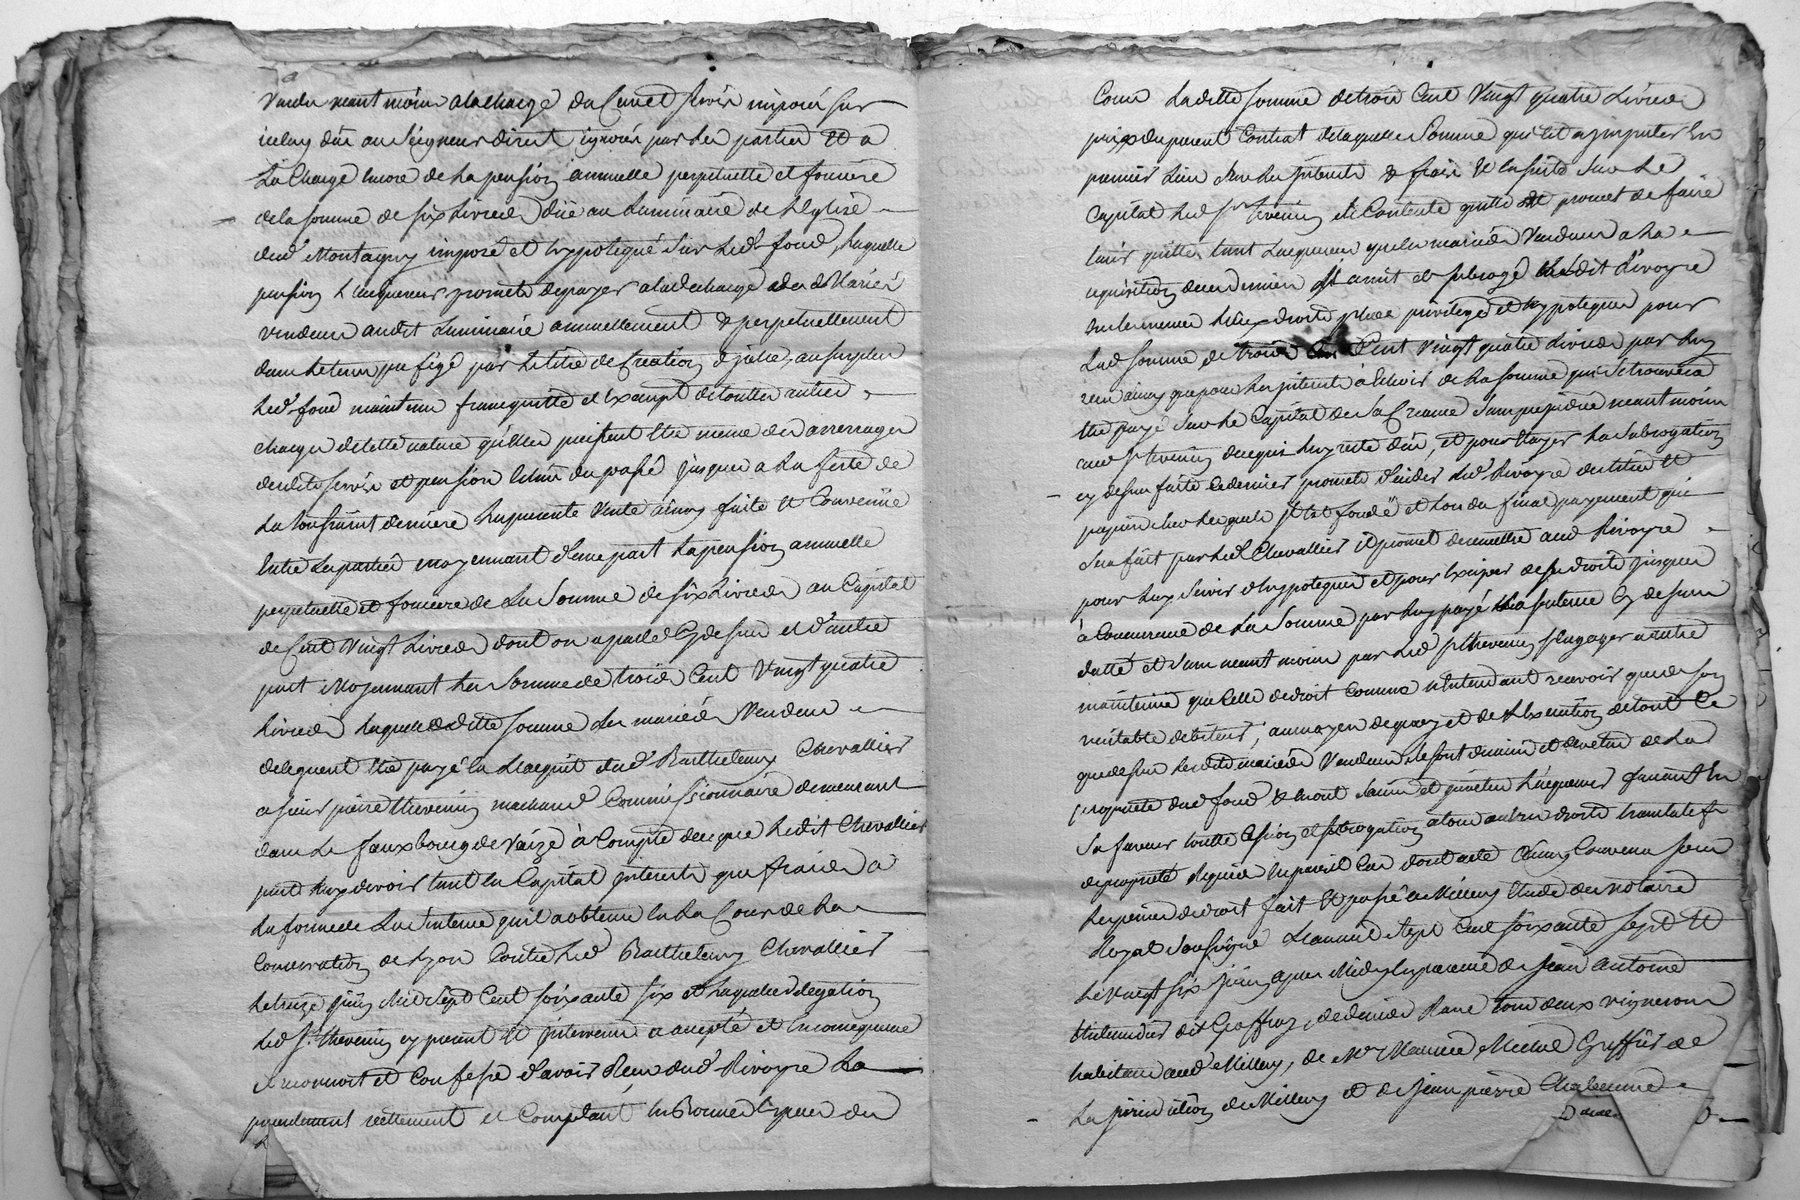 Vendu neant moins a la charge du Cens et servis imposés sur
iceluy dûs au Seigneur direct ignorés par les parties et a
La Charge encore de la pension annuelle perpetuelle et fonciere
de la somme de six Livres düe au Luminaire de L'eglise
dud. Montagny imposé et hypotequé sur led. fond, laquelle
pension L'acquereur promets de payer a la decharge des d. mariés
vendeurs audit Luminaire annuellement & perpetuellement
dans le terme prefigé par le titre de Creation d'jcelle, au surplus
led. fond maintenu franc quitte et Exempt de touttes autres
charges de cette nature qu'elles puissent être meme des arrerages
desdits servis et pension echus du passé jusques a la feste de
La toussaint derniere La presente Vente ainsy faite et Convenüe
Entre Les parties moyennant d'une part la pension annuelle
perpetuelle et fonciere de la Somme de six Livres au Capital
de Cent Vingt Livres dont on a parlé Cy dessus et d'autre
part Moyennant la Somme de trois Cent Vingt quatre
Livres laquelle ditte somme les mariés Vendeurs
deleguent être payé en L'acquit dud. Barthelemy Chevallier
a sieur pierre thevenin marchand Commissionnaire demeurant
dans Le fauxbourg de Vaize à Compte de ce que ledit Chevallier
peut luy devoir tant en Capital jnterets que fraix a
la forme de La Sentence qu'il a obtenu en La Cour de La
Conservation de Lyon Contre led. Barthelemy Chevallier
le treize juin Mil Sept Cent soixante six et laquelle delegation
led. Sr. thevenin cy present et jntervenu a accepté et en consequence
a reconnoit et Confesse d'avoir Reçu dud. Rivoyre La
presentement reellement et Comptant en Bonnes Especes du
Cours Laditte somme de trois Cent Vingt quatre Livres
prix du present Contrat de laquelle Somme qui est a jmputer En
premier Lieu sur les jnterets & fraix & ensuite sur Le
Capital led. Sr. thevenin s'est Contenté quitte et promet de faire
tenir quitte tant L'acquereur que les mariés Vendeurs a la
requisition de ces derniers et a mis et subrogé Ledit Rivoyre
en les memes Lieux droits place privilege et hypoteques pour
Lad. somme de trois Cent vingt quatre Livres par luy
reçu ainsy que pour les jnterets à Echoir de la somme qui se trouvera
être payé sur Le Capital de sa Creance sans prejudice neant moins
aud. Sr. thevenin de ce qui luy reste dû, et pour Etayer La subrogation
cy dessus faite Ce dernier promets d'aider led. Rivoyre des titres et
papiers chez lesquels jl est fondé et lors du final payement qui
sera fait par led. Chevallier jl promet de remettre aud. Rivoyre
pour luy servir d'hypoteque et pour Exiper de ses droits jusques
à Concurrence de La Somme par luy payé La sentence Cy dessus
datté et sans neant moins par led. Sr. thevenin s'engager a autre
maintenue que Celle de droit Comme n'entendant recevoir que de son
veritable debiteur, au moyen de quoy et de L'execution de tout Ce
que dessus Lesdits mariés Vendeurs se sont demis et devetus de La
propriete dud. fond & en ont saisi et jnvetu L'acquereur faisant En
sa faveur toutte Cession et subrogation a tous autres droits translatifs
de propriete requise En pareil Cas dont acte Ainsy Convenu sous
Les peines de droit fait et passé a Millery Etude du notaire
Royal Soussigné L'an mil Sept Cent soixante sept et
le Vingt six juin apres Midy En presence de Jean Antoine
dit Geoffray, de Rave tous deux vignerons
habitans aud. Millery, de Me Maurice Michel Greffier de
La jurisdiction de Millery et de Jean pierre